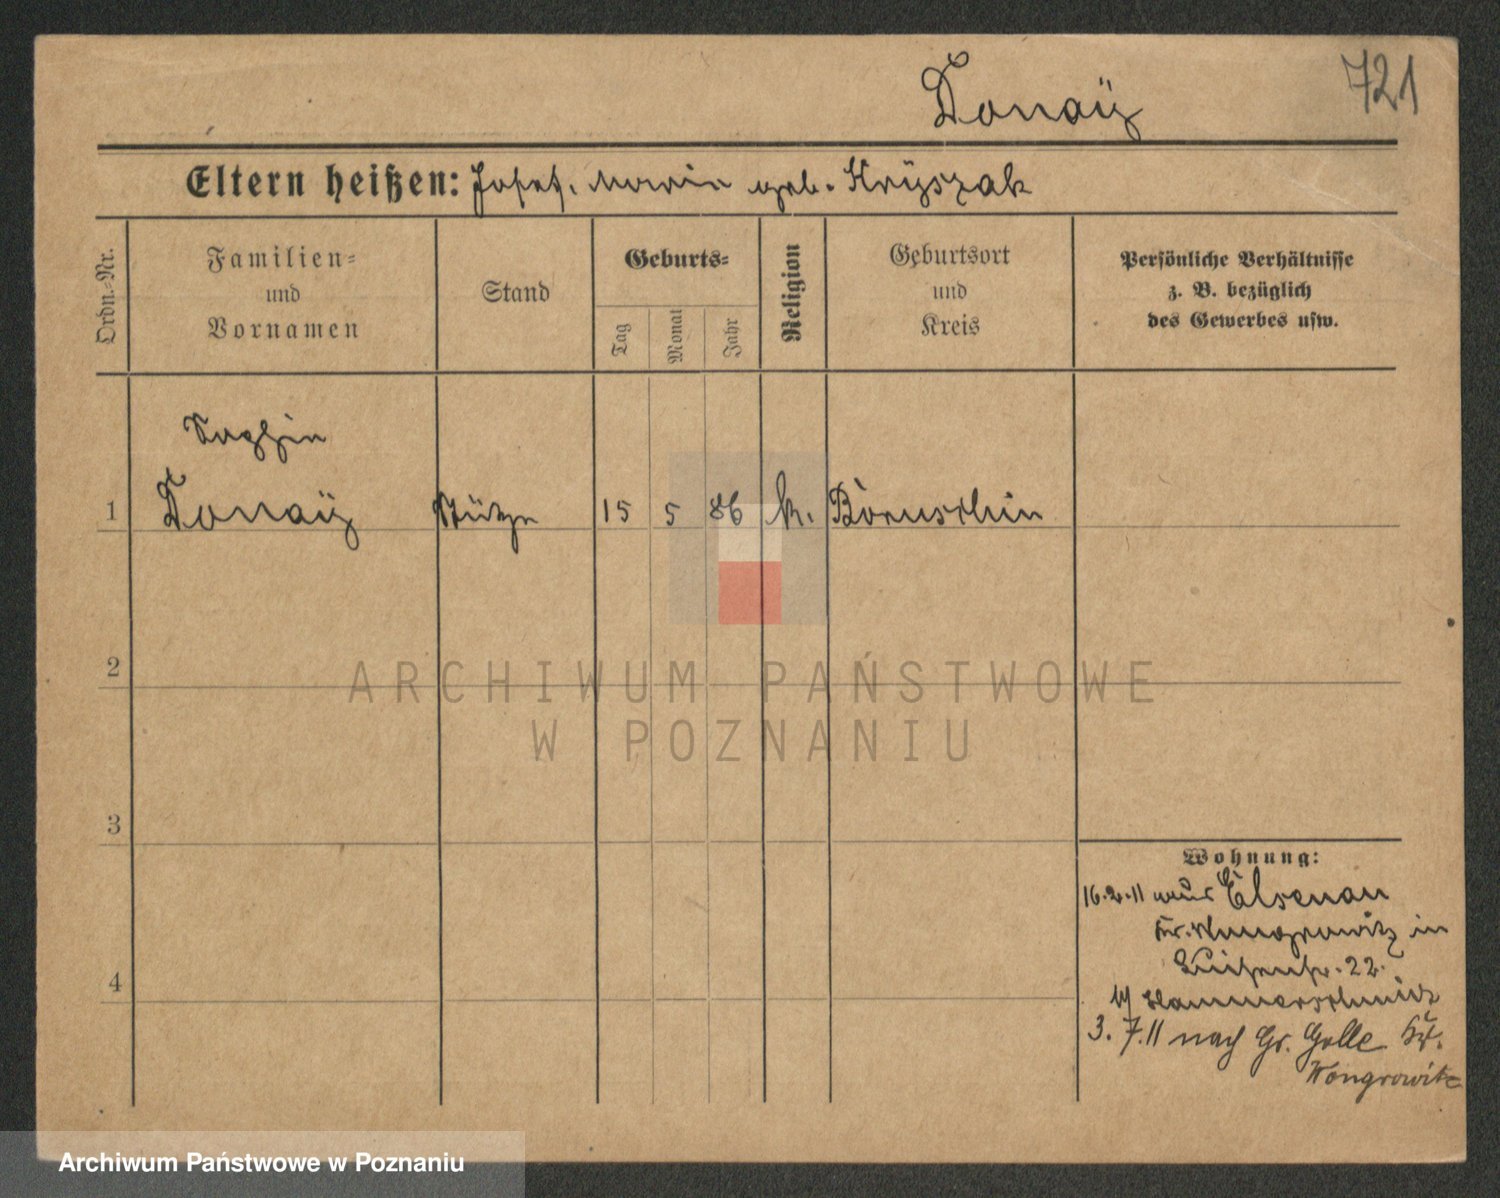 721
Donaÿ
Eltern heißen: Josef, Maria geb. Krÿszak
Ordn.-Nr.
Familien-
und
Vornamen
Stand
Geburts-
Tag
Monat
Jahr
Religion
Geburtsort
und
Kreis
Persönliche Verhältnisse
z. B. bezüglich
des Gewerbes usw.
Sophie
1 Donaÿ Stütze 15 5 86 k. Boruschin
2
3
4
Wohnung:
16.2.11 aus Elsenau
Kr. Wongrowitz in
Luisenstr. 22.
b/ Hammerschmidt
3.7.11 nach Gr. Golle Kr.
Wongrowitz
ARCHIWUM PAŃSTWOWE
W POZNANIU
Archiwum Państwowe w Poznaniu